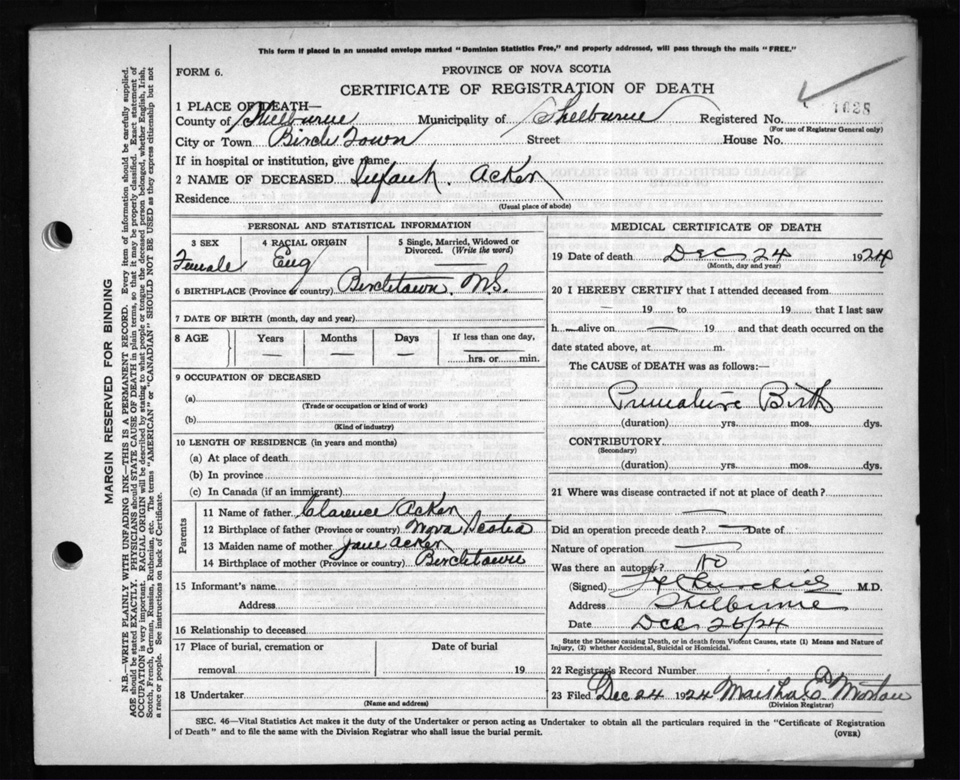 This form if placed in an unsealed envelope marked "Dominion Statistics Free," and properly addressed, will pass through the mails "FREE."
FORM 6.
PROVINCE OF NOVA SCOTIA
CERTIFICATE OF REGISTRATION OF DEATH
1 PLACE OF DEATH—
County of Shelburne Municipality of Shelburne Registered No.
(For use of Registrar General only)
City or Town Birch Town Street House No.
If in hospital or institution, give name
2 NAME OF DECEASED Infant. Acker
Residence
(Usual place of abode)
PERSONAL AND STATISTICAL INFORMATION
3 SEX 4 RACIAL ORIGIN 5 Single, Married, Widowed or Divorced. (Write the word)
Female Eng —
6 BIRTHPLACE (Province or country) Birchtown. N.S.
7 DATE OF BIRTH (month, day and year)
8 AGE Years Months Days If less than one day,
— — — hrs. or min.
9 OCCUPATION OF DECEASED
(a)
(Trade or occupation or kind of work)
(b)
(Kind of industry)
10 LENGTH OF RESIDENCE (in years and months)
(a) At place of death
(b) In province
(c) In Canada (if an immigrant)
Parents
11 Name of father Clarence Acker
12 Birthplace of father (Province or country) Nova Scotia
13 Maiden name of mother Jane Acker
14 Birthplace of mother (Province or country) Birchtown
15 Informant's name
Address
16 Relationship to deceased
17 Place of burial, cremation or Date of burial
removal 19
18 Undertaker
(Name and address)
MEDICAL CERTIFICATE OF DEATH
19 Date of death Dec 24 1924
(Month, day and year)
20 I HEREBY CERTIFY that I attended deceased from
— 19 to 19 that I last saw
h — alive on — 19 and that death occurred on the
date stated above, at m.
The CAUSE of DEATH was as follows:—
Premature Birth
(duration) yrs. mos. dys.
CONTRIBUTORY
(Secondary)
(duration) yrs. mos. dys.
21 Where was disease contracted if not at place of death?
—
Did an operation precede death? — Date of
Nature of operation —
Was there an autopsy? No
(Signed) M.D.
Address Shelburne
Date Dec 26/24
State the Disease causing Death, or in death from Violent Causes, state (1) Means and Nature of
Injury, (2) whether Accidental, Suicidal or Homicidal.
22 Registrars Record Number
23 Filed Dec 24 1924 Marsha
(Division Registrar)
SEC. 46—Vital Statistics Act makes it the duty of the Undertaker or person acting as Undertaker to obtain all the particulars required in the "Certificate of Registration
of Death" and to file the same with the Division Registrar who shall issue the burial permit.
(OVER)
MARGIN RESERVED FOR BINDING
N.B.—WRITE PLAINLY WITH UNFADING INK—THIS IS A PERMANENT RECORD. Every item of information should be carefully supplied.
AGE should be stated EXACTLY. PHYSICIANS should STATE CAUSE OF DEATH in plain terms, so that it may be properly classified. Exact statement of
OCCUPATION is very important. RACIAL ORIGIN will be described by stating to what people or tongue the deceased person belonged, whether English, Irish,
Scotch, French, German, Russian, Ruthenian, etc. The terms "AMERICAN" or "CANADIAN" SHOULD NOT BE USED as they express citizenship but not
a race or people. See instructions on back of Certificate.